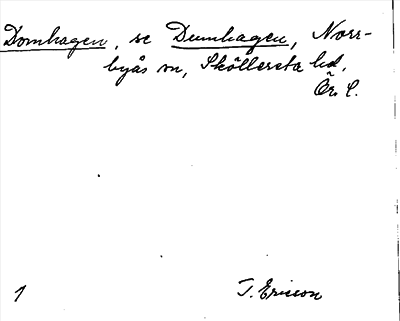 Domhagen, se Dumhagen, Norr-
byås sn, Sköllersta hd,
Ör. l.
1
T. Ericson